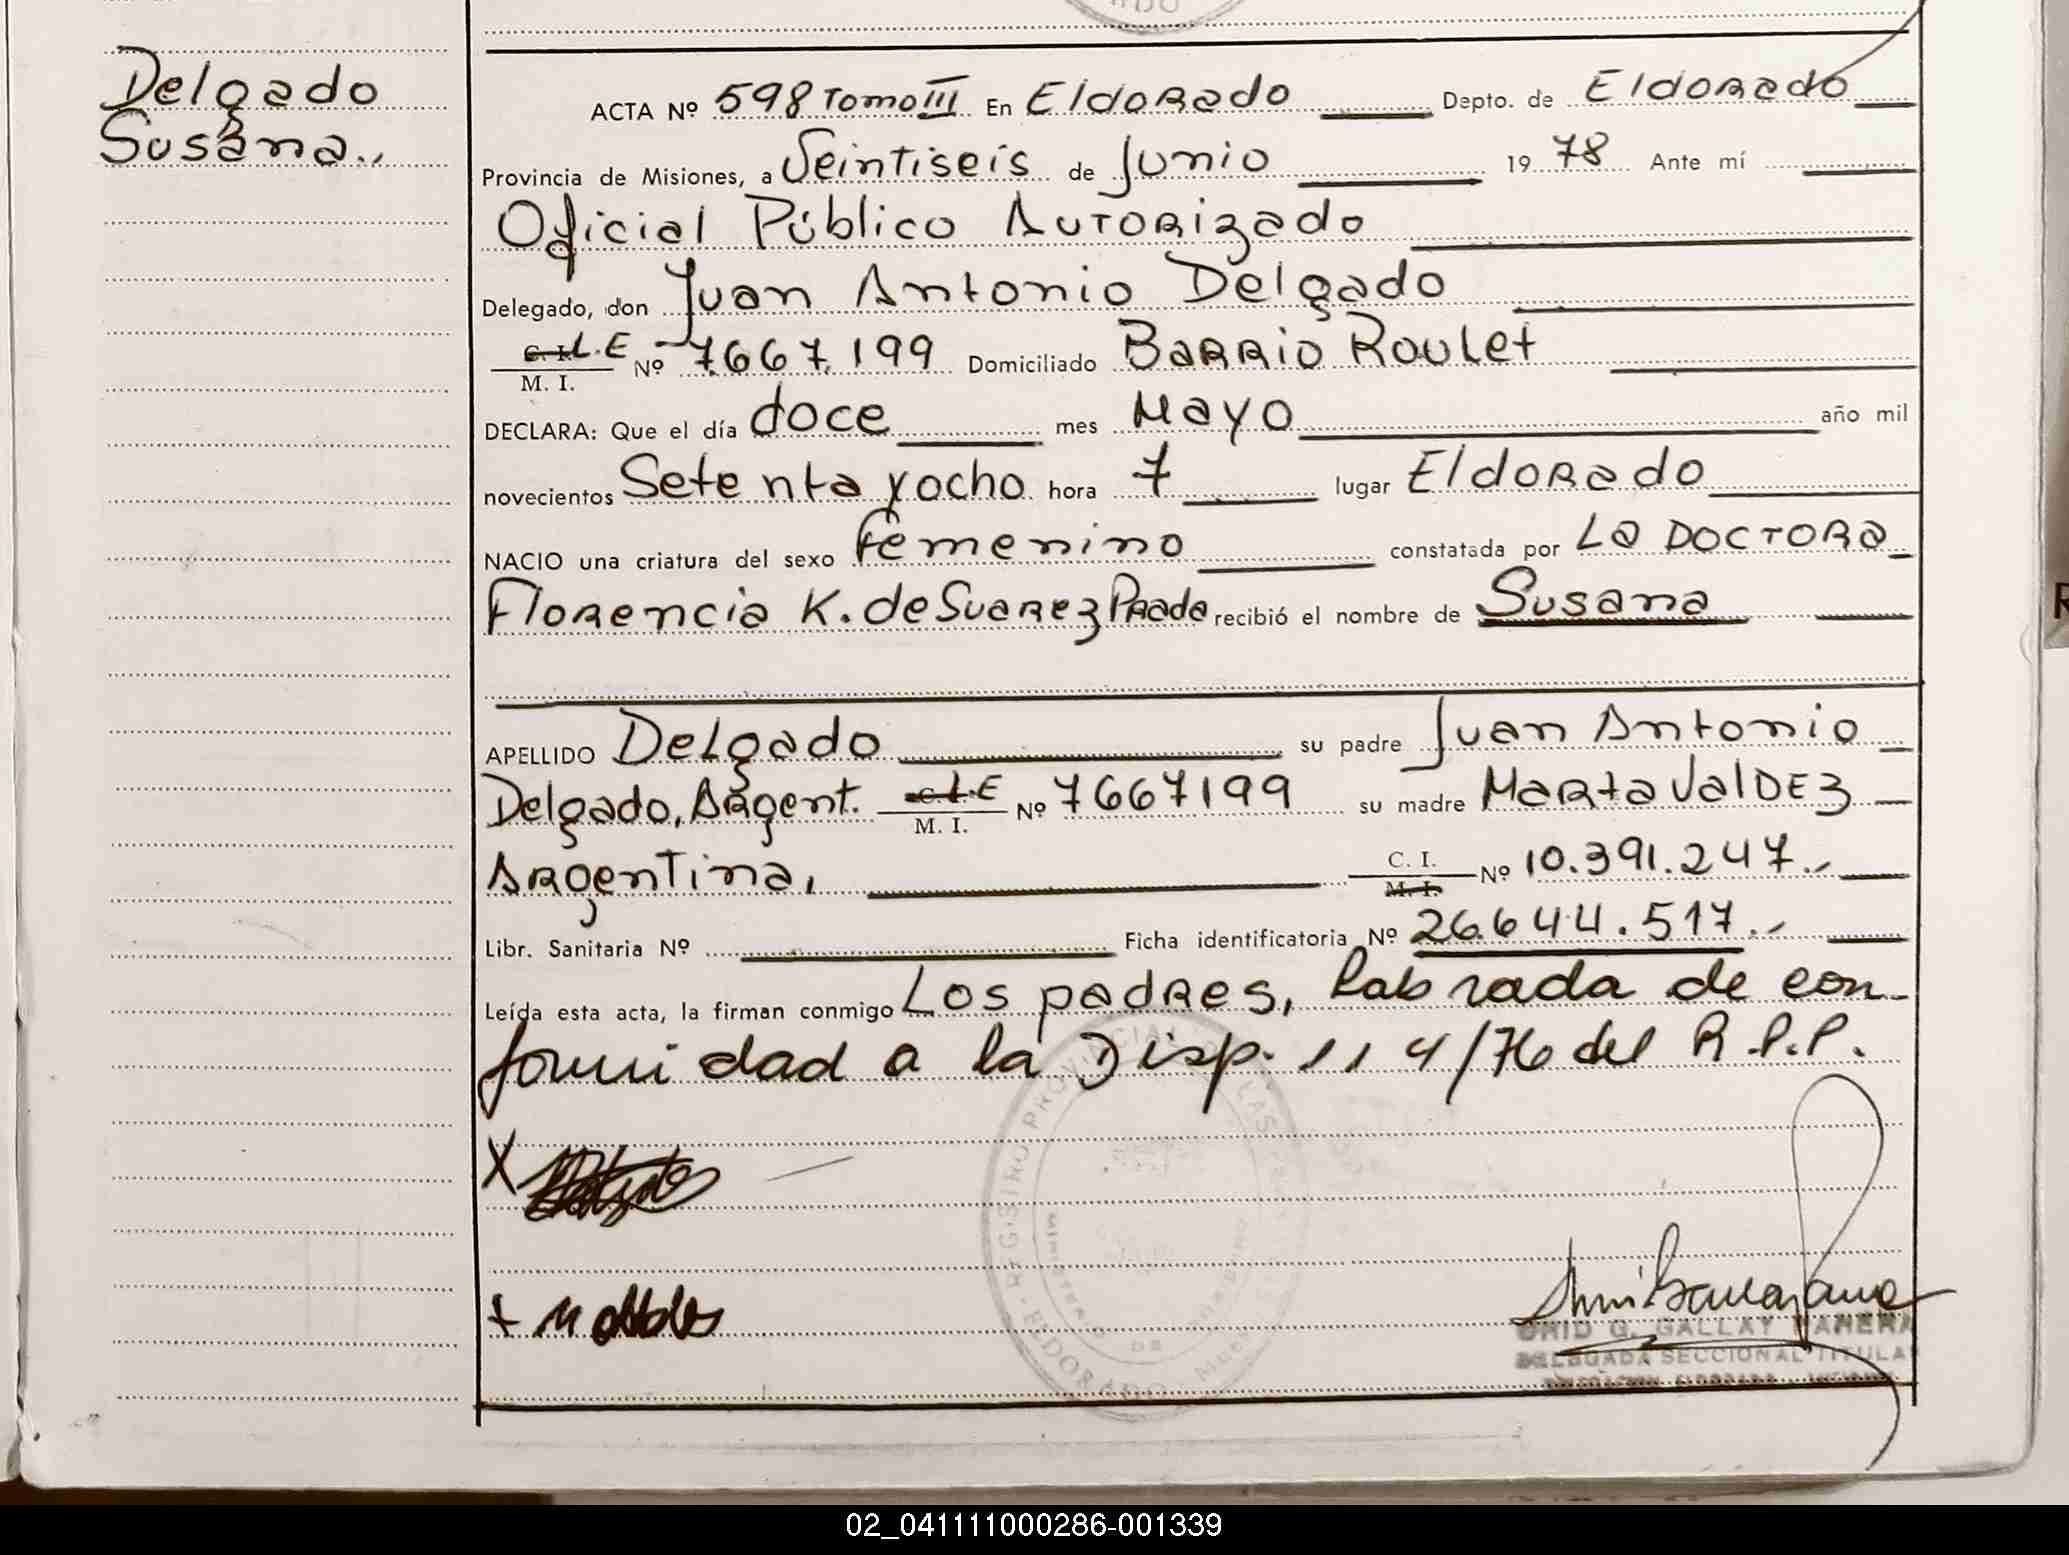 Delgado
Susana.,
ACTA Nº 598 Tomo III En Eldorado Depto. de Eldorado
Provincia de Misiones, a Veintiseis de Junio 19 78 Ante mí
Oficial Público Autorizado
Delegado, don Juan Antonio Delgado
C. I. L.E Nº 7.667.199 Domiciliado Barrio Roulet
M. I.
DECLARA: Que el día doce mes Mayo año mil
novecientos Setenta y ocho hora 7 lugar Eldorado
NACIO una criatura del sexo femenino constatada por La Doctora
Florencia K. de Suarez Prada recibió el nombre de Susana
APELLIDO Delgado su padre Juan Antonio
Delgado, Argent. C. I. L.E Nº 7667199 su madre Marta Valdez
M. I.
Argentina, C. I. Nº 10.391.247.,
M. I.
Libr. Sanitaria Nº Ficha identificatoria Nº 26.644.517.,
Leída esta acta, la firman conmigo Los padres, labrada de con-
formidad a la Disp. 114/76 del R.P.P.
X
+
REGISTRO PROVINCIAL DE LAS
ELDORADO
MINISTERIO DE GOBIERNO
G. GALLAY
DELEGADA SECCIONAL TITULA
02_041111000286-001339